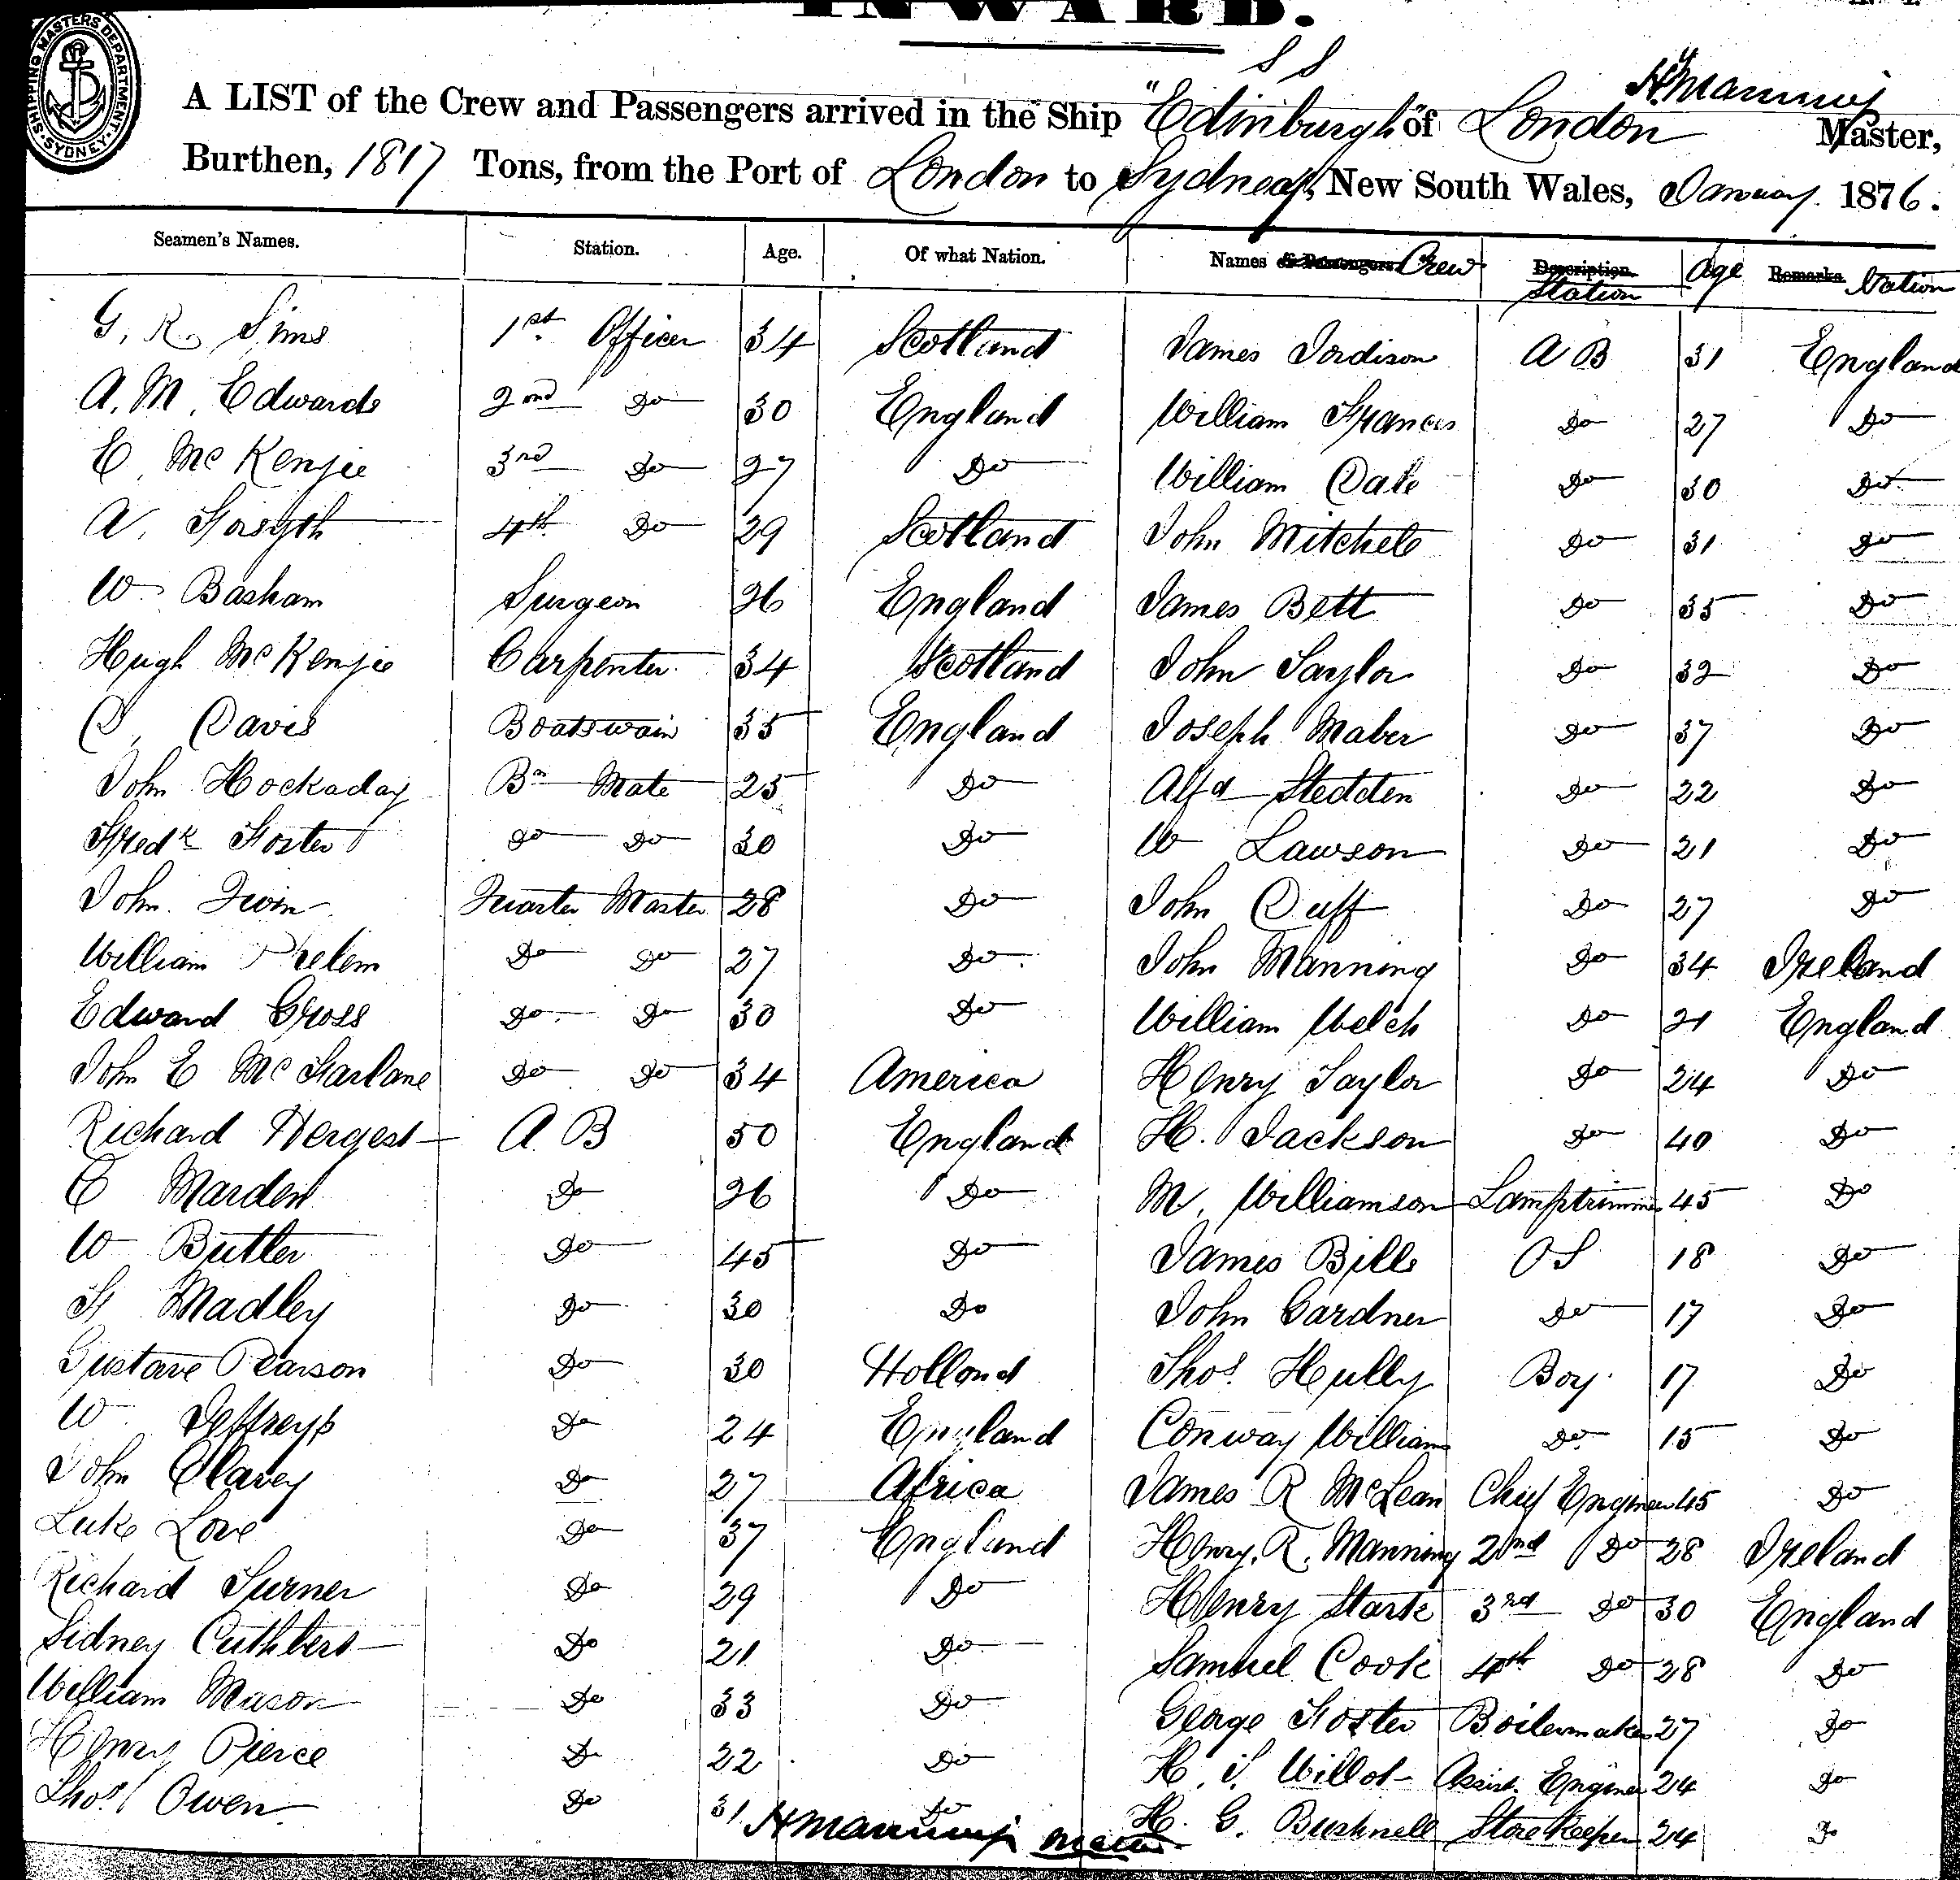 INWARD.
SHIPPING MASTERS DEPARTMENT. SYDNEY.
S S
H Manning
A LIST of the Crew and Passengers arrived in the Ship "Edinburgh" of London Master,
Burthen, 1817 Tons, from the Port of London to Sydney, New South Wales, January 1876.
Seamen's Names. Station. Age. Of what Nation. Names of Passengers Crew Description. Station Age Remarks. Nation
G. R. Sims 1st Officer 34 Scotland James Jordison A B 31 England
A. M. Edwards 2nd Do 30 England William Francis Do 27 Do
E McKenzie 3rd Do 27 Do William Dale Do 30 Do
A. Forsyth 4th Do 29 Scotland John Mitchele Do 31 Do
W Basham Surgeon 26 England James Bett Do 35 Do
Hugh McKenzie Carpenter 34 Scotland John Taylor Do 32 Do
Davis Boatswain 35 England Joseph Maber Do 37 Do
John Hockaday Bn Mate 25 Do Alfd Stedden Do 22 Do
Fredk Foster Do Do 30 Do W Lawson Do 21 Do
John Irvin Quarter Master 28 Do John Cuff Do 27 Do
William Do Do 27 Do John Manning Do 34 Ireland
Edward Gross Do Do 30 Do William Welch Do 21 England
John E McFarlane Do Do 34 America Henry Taylor Do 24 Do
Richard Hergest A B 50 England H. Jackson Do 40 Do
C Marden Do 26 Do M. Williamson Lamptrimmer 45 Do
W Butler Do 45 Do James Bills O S 18 Do
F Madley Do 30 Do John Gardner Do 17 Do
Gustave Pearson Do 30 Holland Thos. Hully Boy 17 Do
W Jeffreys Do 24 England Conway William Do 15 Do
John Clavey Do 27 Africa James R McLean Chief Engineer 45 Do
Luke Love Do 37 England Henry. R. Manning 2nd Do 28 Ireland
Richard Turner Do 29 Do Henry Stark 3rd Do 30 England
Sidney Cuthbert Do 21 Do Samuel Cook 4th Do 28 Do
William Mason Do 33 Do George Foster Boilermaker 27 Do
Henry Pierce Do 22 Do H. Willot Assist. Engineer 24 Do
Thos. Owen Do 31 Do H. G. Bushnell Store Keeper 24 Do
H Manning Master